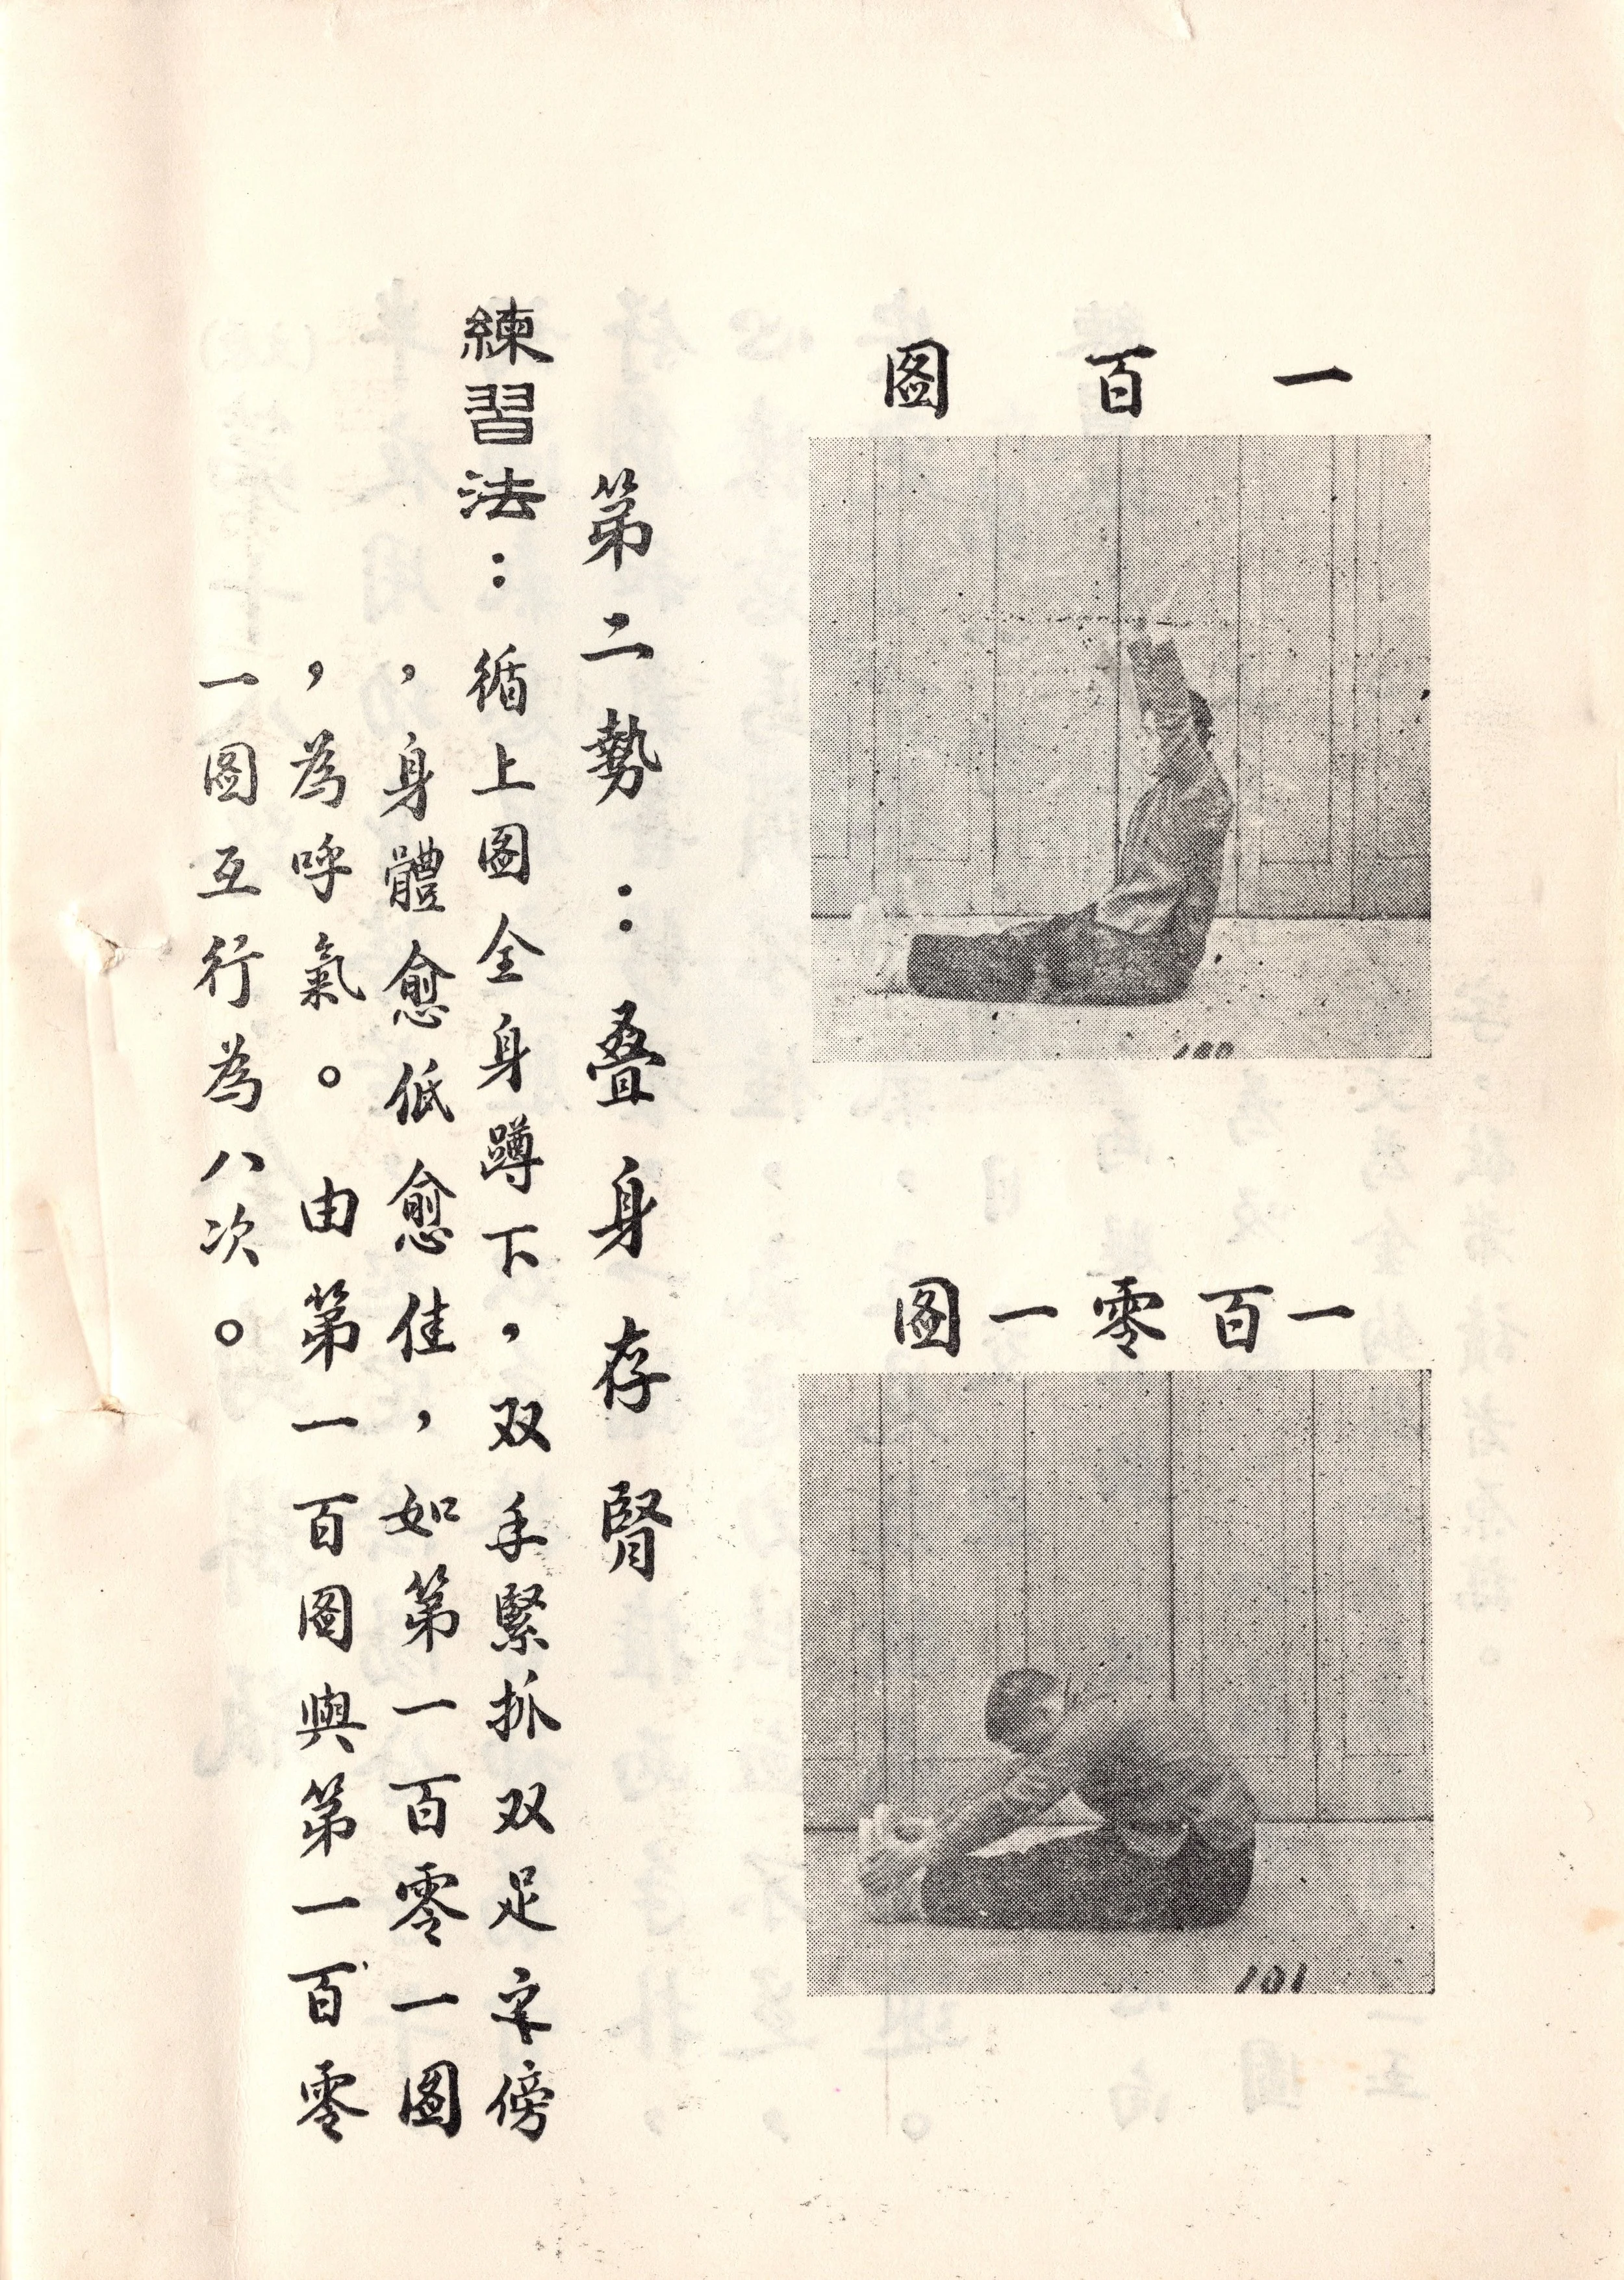 一百圖
100
一百零一圖
101
第二勢：叠身存腎
練習法：循上圖全身蹲下，双手緊抓双足傍
，身體愈低愈佳，如第一百零一圖
，為呼氣。由第一百圖與第一百零
一圖互行為八次。